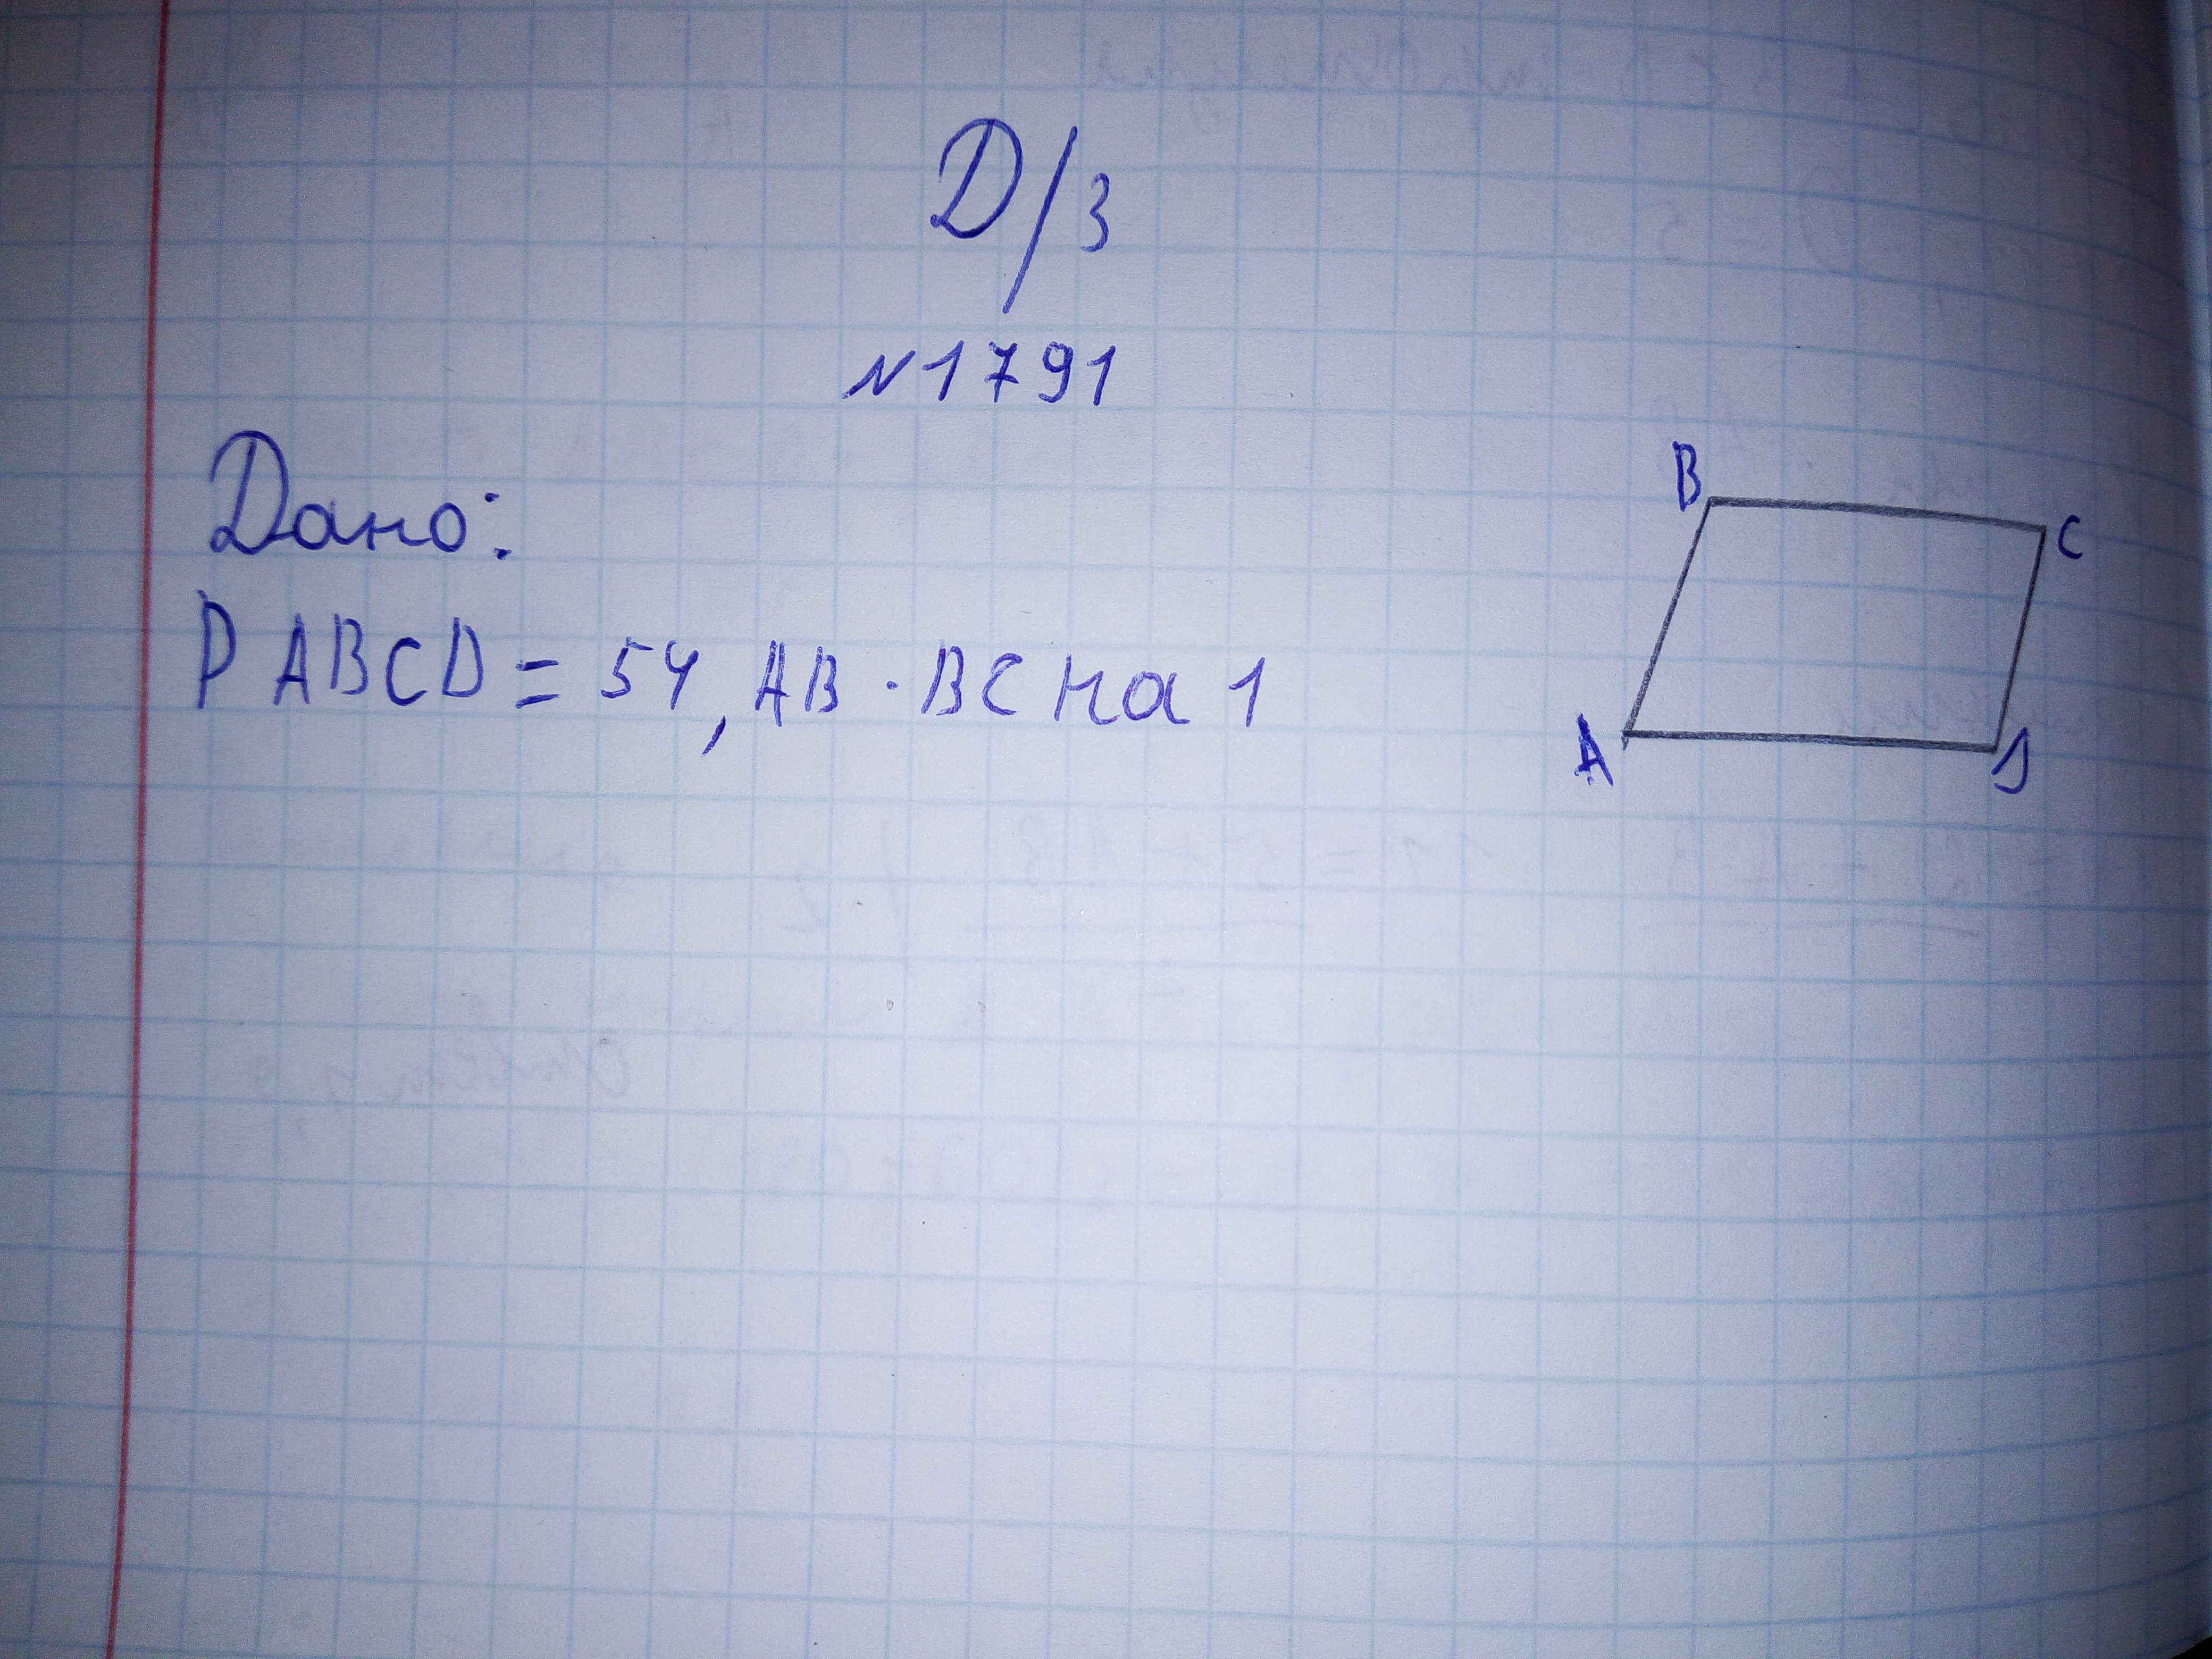 D/З
№1791
Дано:
P ABCD = 54, AB · BC на 1
B
C
A
D